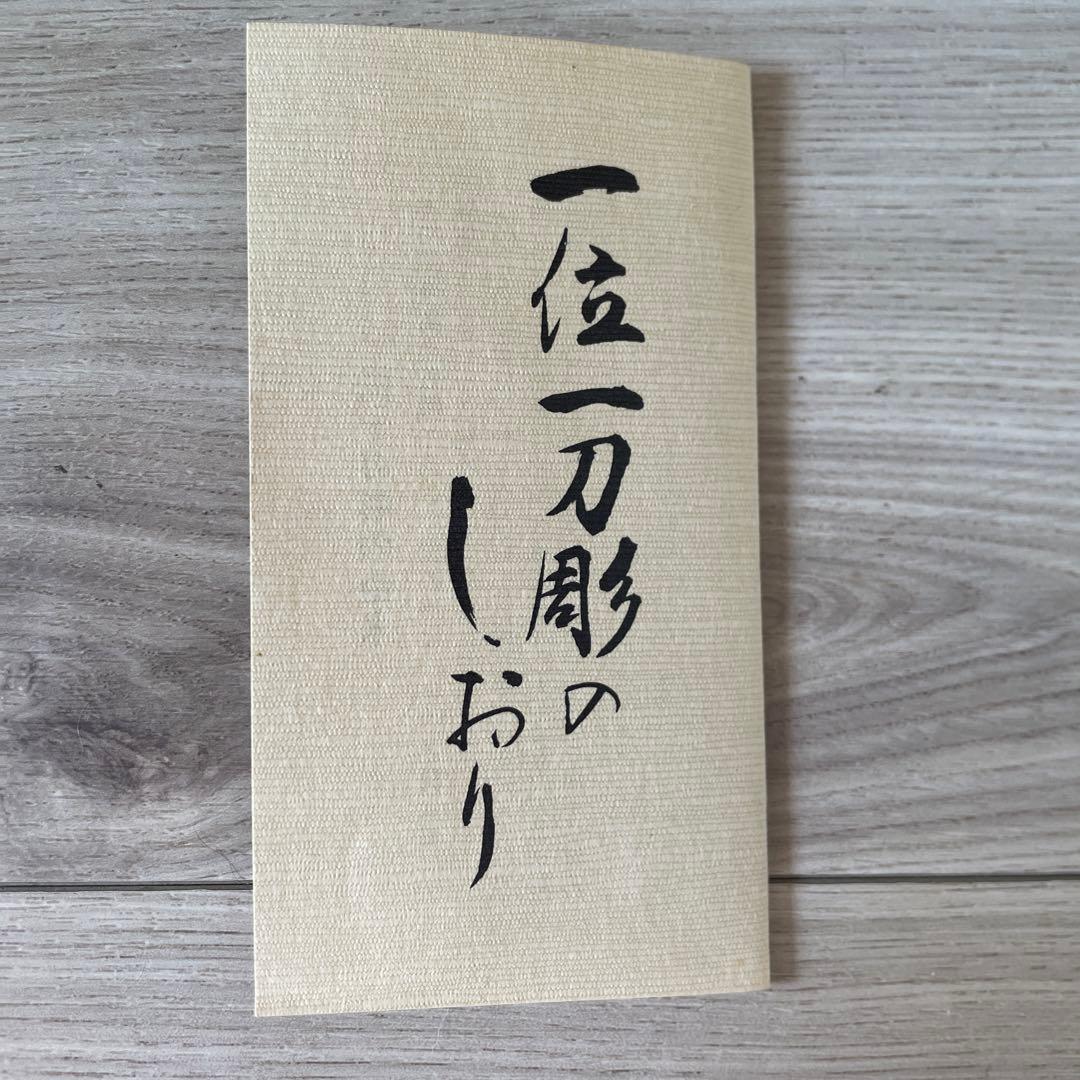 一位一刀彫の
しおり